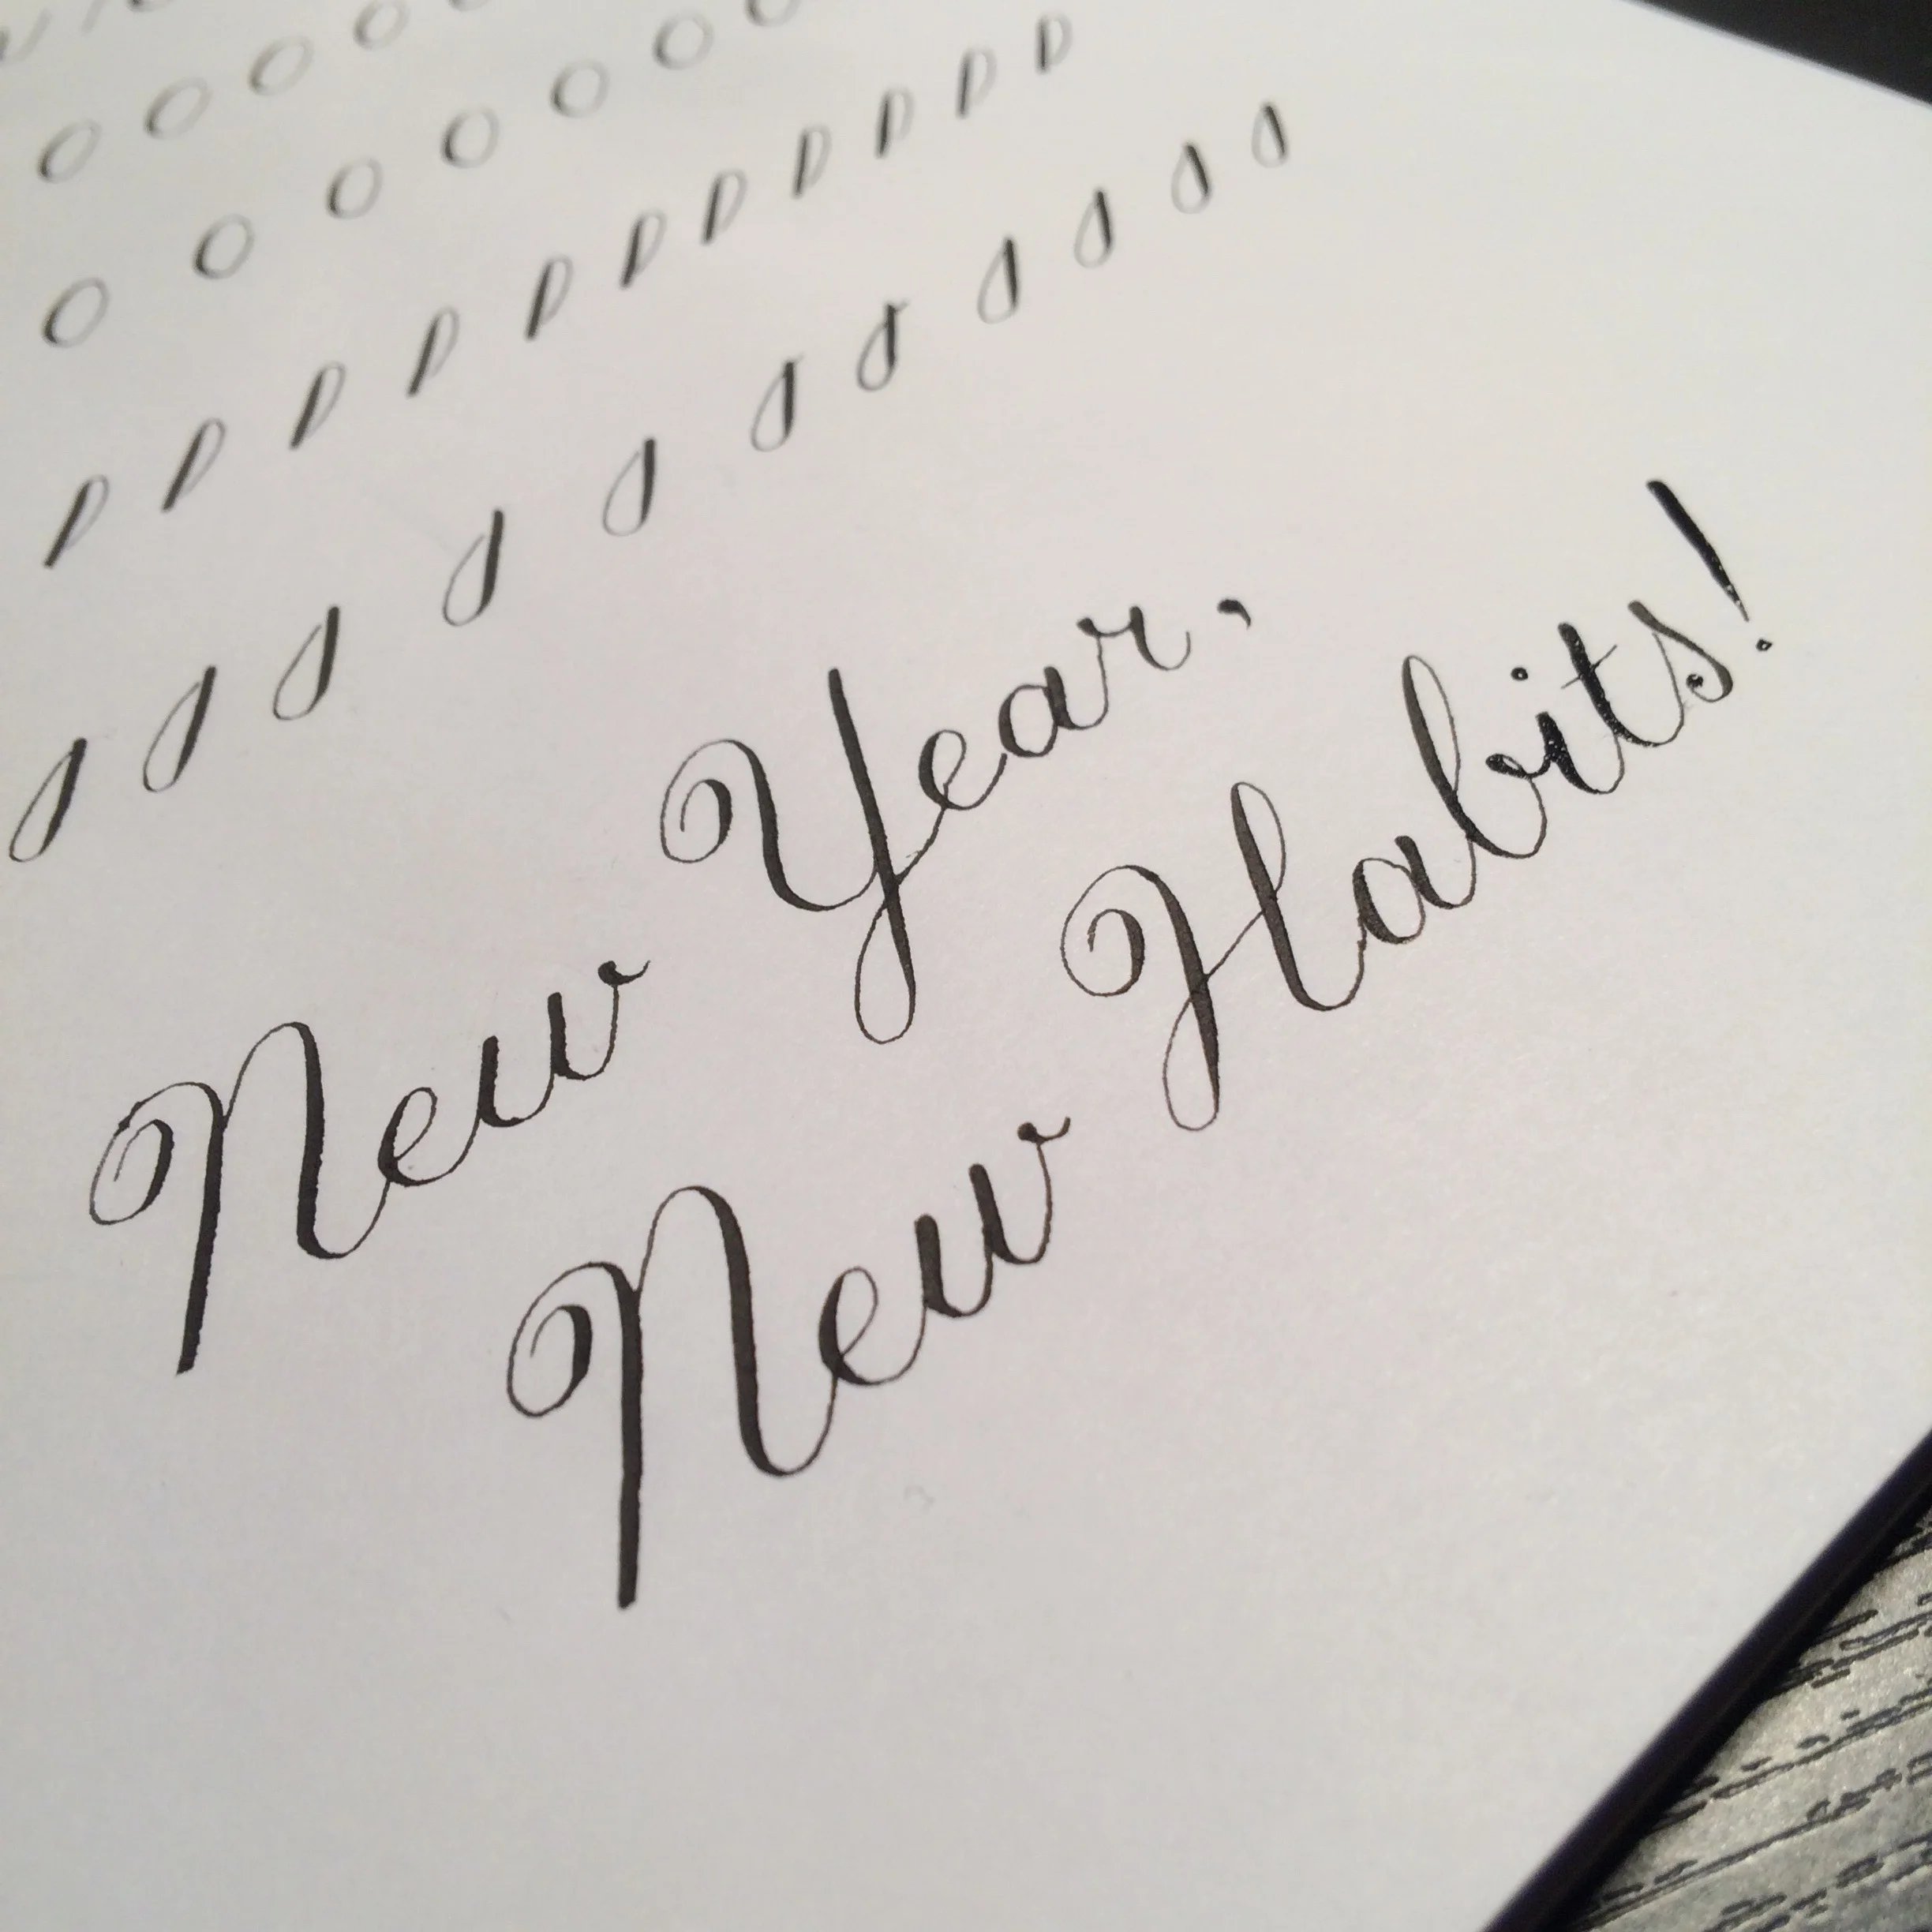 New Year,
New Habits!